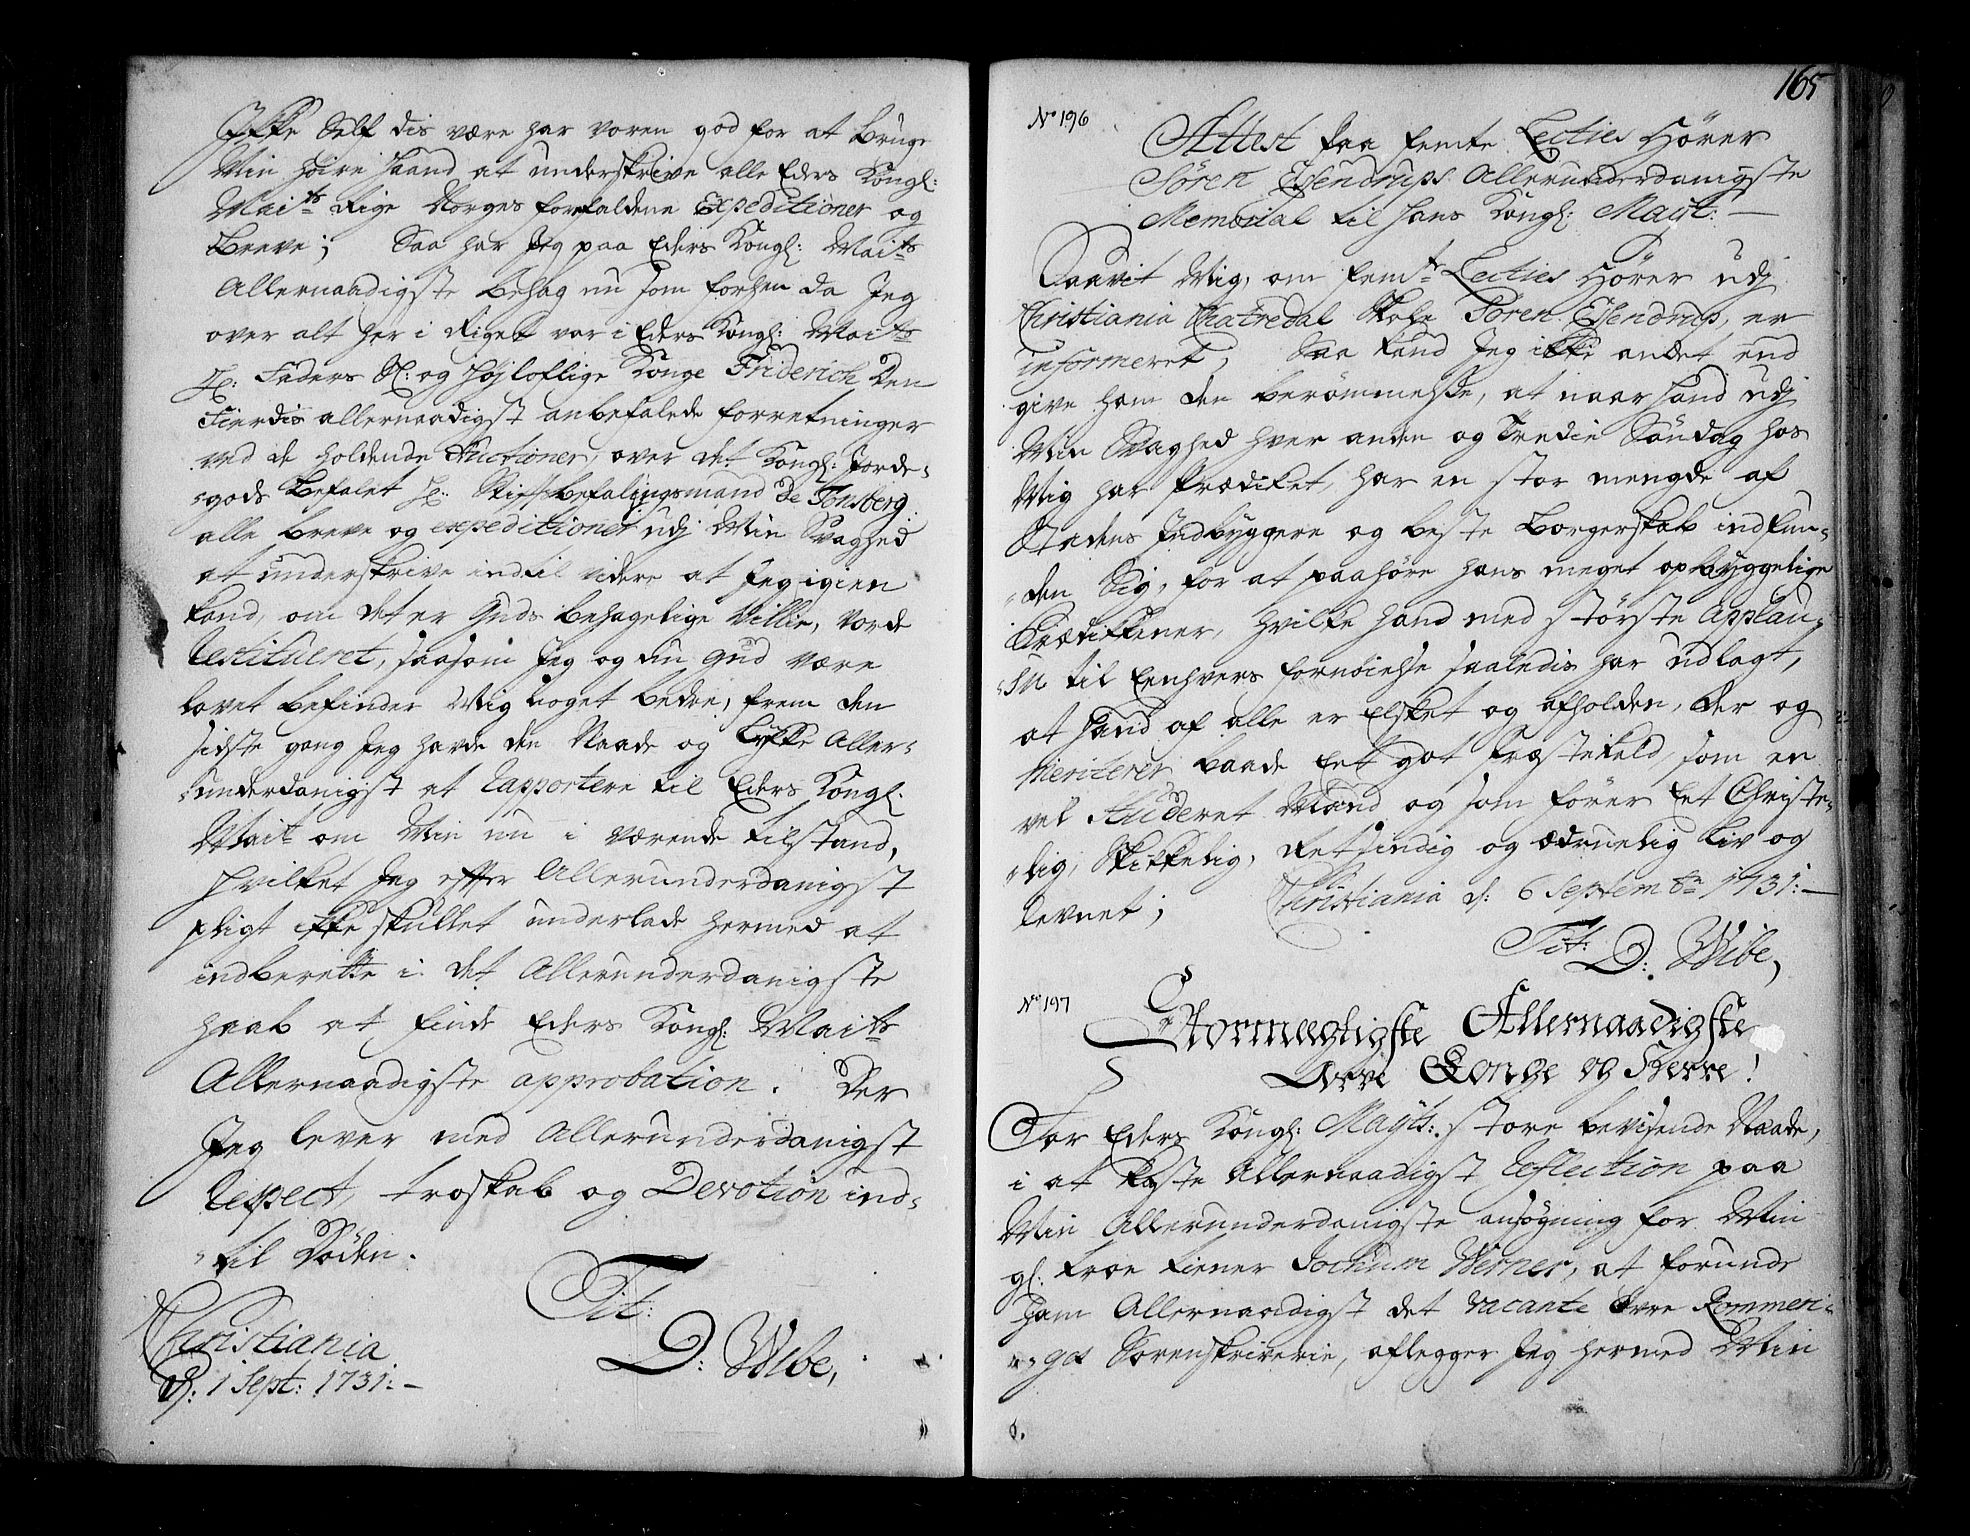 Ikke Self dis være har voren god for at Bruge
Min høire Haand at underskrive alle Eders Kongl:
Maits Rige Norges forefaldene Expeditioner og
Breve; Saa har Jeg paa Eders Kongl: Maits
Allernaadigste behag nu som forhen da Jeg
over alt her i Riget var i Eders Kongl: Maits
H: Faders Sl: og Højloflige Konge Friderich Den
Fierdis allernaadigst anbefalede forretninger
ved de holdende Auctioner, over det Kongl: Jorde-
-gods befalet H: Stiftsbefalingsmand De Tonsberg
alle breve og expeditioner udj Min Svaghed
at underskrive indtil videre at Jeg igien
kand, om det er Guds behagelige Villie, vorde
restitueret, saasom Jeg og nu Gud være
lovet befinder Mig noget bedre, frem den
sidste gang Jeg havde den Naade og Lykke Aller-
-underdanigst at rapportere til Eders Kongl:
Mait om Min nu i værende tilstand,
Hvilket Jeg efter Allerunderdanigst
pligt ikke skullet underlade hermed at
indberette i det Allerunderdanigste
haab at finde Eders Kongl: Maits
Allernaadigste approbation. Der
Jeg lever med Allerunderdanigst
Respect, troskab og Devotion ind-
-til Døden.
Tit:
D: Wibe,
Christiania
d: 1 Sept: 1731:-
165
No 196
Attest paa femte Lecties Hører
Søren Essendrups Allerunderdanigste
Memorial til Hans Kongl: Mayt:
Saavit Mig, om femte Lecties Hører udj
Christiania Chatredal Skole Søren Essendrup, er
informeret, Saa kand Jeg ikke andet end
give ham den berømmelse, at naar Hand udj
Min Svaghed hver anden og Tredie Søndag hos
Mig har Prædiket, har en stor mengde af
Stadens Indbyggere og beste Borgerskab indfun-
-den Sig, for at paahøre hans meget opbyggelige
Prædikkener, Hvilke hand med største Applau-
-su til Eenhvers fornøielse saaledis har udlagt,
at Hand af alle er Elsket og afholden, der og
meriterer baade Eet got Præstekald, som en
vel Studeret Mand og som fører Eet Christe-
-lig, Skikkelig, Retsindig og ædruelig Liv og
levnet; Christiania d: 6 Septembr 1731:-
Tit:
D: Wibe,
No 197
Stormægtigste Allernaadigste
Arve Konge og Herre!
For Eders Kongl: Mayts: store bevisende Naade,
i at kaste Allernaadigst reflection paa
Min Allerunderdanigste ansøgning for Min
gl: troe tiener Jochum Werner, at forunde
ham Allernaadigst det vacante Øvre Rommeri-
-ges Sorenskriverie, aflegger Jeg hermed Min